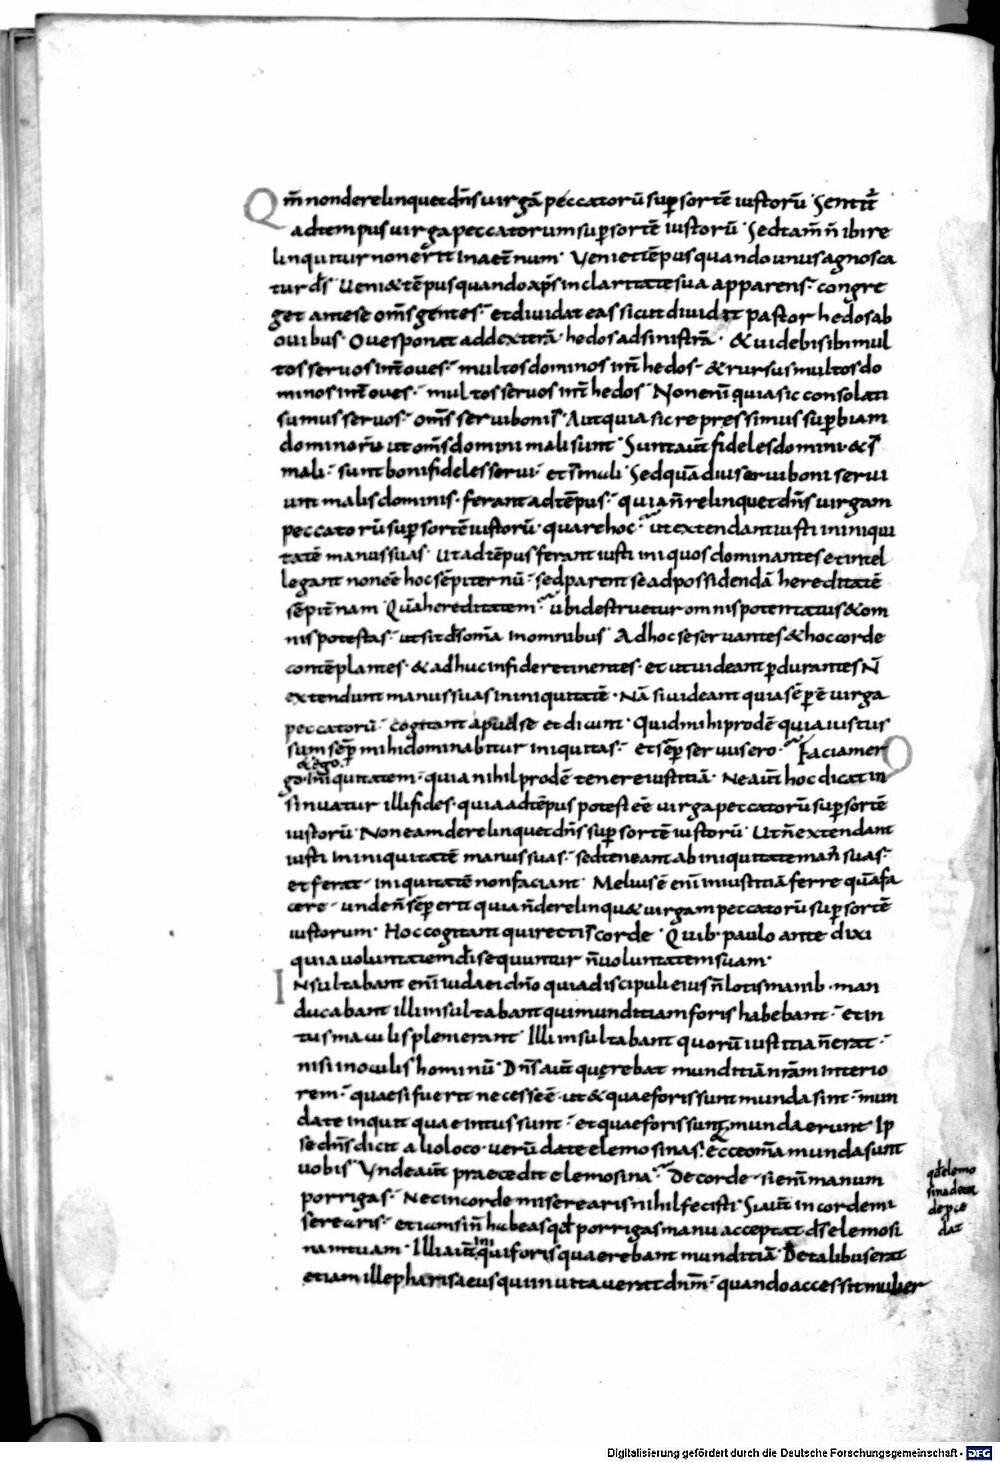 Qm̄ non derelinquet dn̄s uirgā peccatorū sup̱ sortē iustorū. Sentit̄
ad tempus uirga peccatorum sup̱ sortē iustorū. Sed tam̄ n̄ ibi re
linquitur non erit in aet̄num. Veniet tēpus quando unus agnosca
tur d̄s. Ueni& tēpus quando xp̄s in claritate sua apparens. congre
get ante se om̄s gentes. et diuidat eas sicut diuidit pastor hedos ab
ouibus. Oues ponat ad dexterā. hedos ad sinistrā. & uidebis ibi mul
tos seruos int̄ oues. multos dominos int̄ hedos. & rursus multos do
minos int̄ oues. multos seruos int̄ hedos. Non enī quia sic consolati
sumus seruos. om̄s serui boni s̄. Aut quia sic repressimus sup̱biam
dominorū ut om̄s domini mali sunt. Sunt aūt fideles domini. & s̄
mali. sunt boni fideles serui. et s̄ mali. Sed quādiu serui boni serui
unt malis dominis. ferant ad tēpus. quia n̄ relinquet dn̄s uirgam
peccatorū sup̱ sortē iustorū. quare hoc. ut extendant iusti in iniqui
tatē manus suas. Ut ad tēpus ferant iusti iniquos dominantes et intel
legant non eē hoc sēpiternū. sed parent se ad possidendā hereditatē
sēpit̄nam. Quā hereditatem. ubi destruetur omnis potentatus & om
nis potestas. ut sit d̄s om̄a in omnibus. Ad hoc se seruantes & hoc corde
contēplantes. & adhuc in fide retinentes. et ut uideant p̱durantes n̄
extendunt manus suas in iniquitatē. Nā si uideant quia sēp̱ ē uirga
peccatorū. cogitant apud se et dicunt. Quid mihi prodē quia iustus
sum sēp̱ mihi dominabitur iniquitas. et sēp̱ seruus ero. Faciam er
& ego
go iniquitatem. quia nihil prodē tenere iustitiā. Ne aūt hoc dicat in
sinuatur illi fides. quia ad tēpus potest eē uirga peccatorū sup̱ sortē
iustorū. Non eam derelinquet dn̄s sup̱ sortē iustorū. Ut n̄ extendant
iusti in iniquitatē manus suas. sed teneant ab iniquitate man̄ suas.
et ferat. iniquitatē non faciant. Melius ē enī iniustitiā ferre quā fa
cere. unde n̄ sēp̱ erit quia n̄ derelinqu& uirgam peccatorū sup̱ sortē
iustorum. Hoc cogitant qui recti s̄ corde. Quib. paulo ante dixi
quia uoluntatem d̄i sequuntur n̄ uoluntatem suam.
Insultabant enī iudaei dn̄o quia discipuli eius n̄ lotis manib. man
ducabant illi insultabant qui munditiam foris habebant. et in
tus maculis pleni erant. Illi insultabant quorū iustitia n̄ erat.
nisi in oculis hominū. Dn̄s aūt quęrebat munditiā nr̄am interio
rem. quae si fuerit necesse ē. ut & quae foris sunt munda sint. mun
date inquit quae intus sunt. et quae foris sunt munda erunt. Ip
se dn̄s dicit alio loco. uerū date elemosinas. ecce om̄a munda sunt
uobis. Vnde aūt praecedit elemosina. De corde. si enī manum
porrigas. Nec in corde miserearis nihil fecisti. Si aūt in corde mi
serearis. etiam si n̄ habeas qđ porrigas manu acceptat d̄s elemosi
nam tuam. Illi aūt iniqui foris quaerebant munditiā. De talibus erat
etiam ille pharisaeus qui inuitauerat dn̄m. quando accessit mulier
qđ elemo
sina de cor
de p̱ce
dat
Digitalisierung gefördert durch die Deutsche Forschungsgemeinschaft - DFG